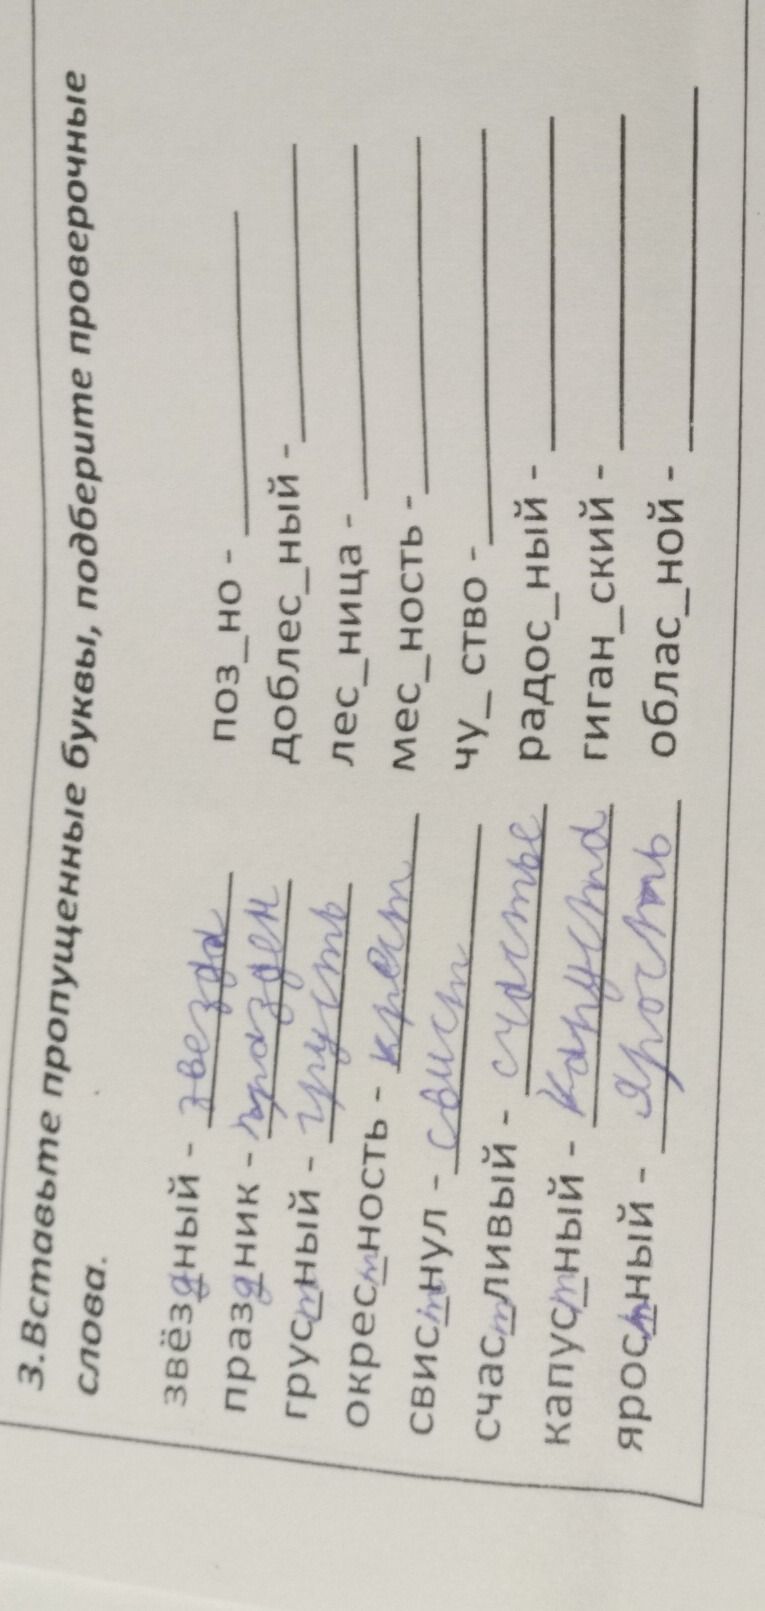 3.Вставьте пропущенные буквы, подберите проверочные
слова.
звёздный - звезда
праздник - празден
грустный - грусть
окрестность - крест
свистнул - свист
счастливый - счастье
капустный - капуста
яростный - ярость
поз_но - ________
доблес_ный - ________
лес_ница - ________
мес_ность - ________
чу_ство - ________
радос_ный - ________
гиган_ский - ________
облас_ной - ________